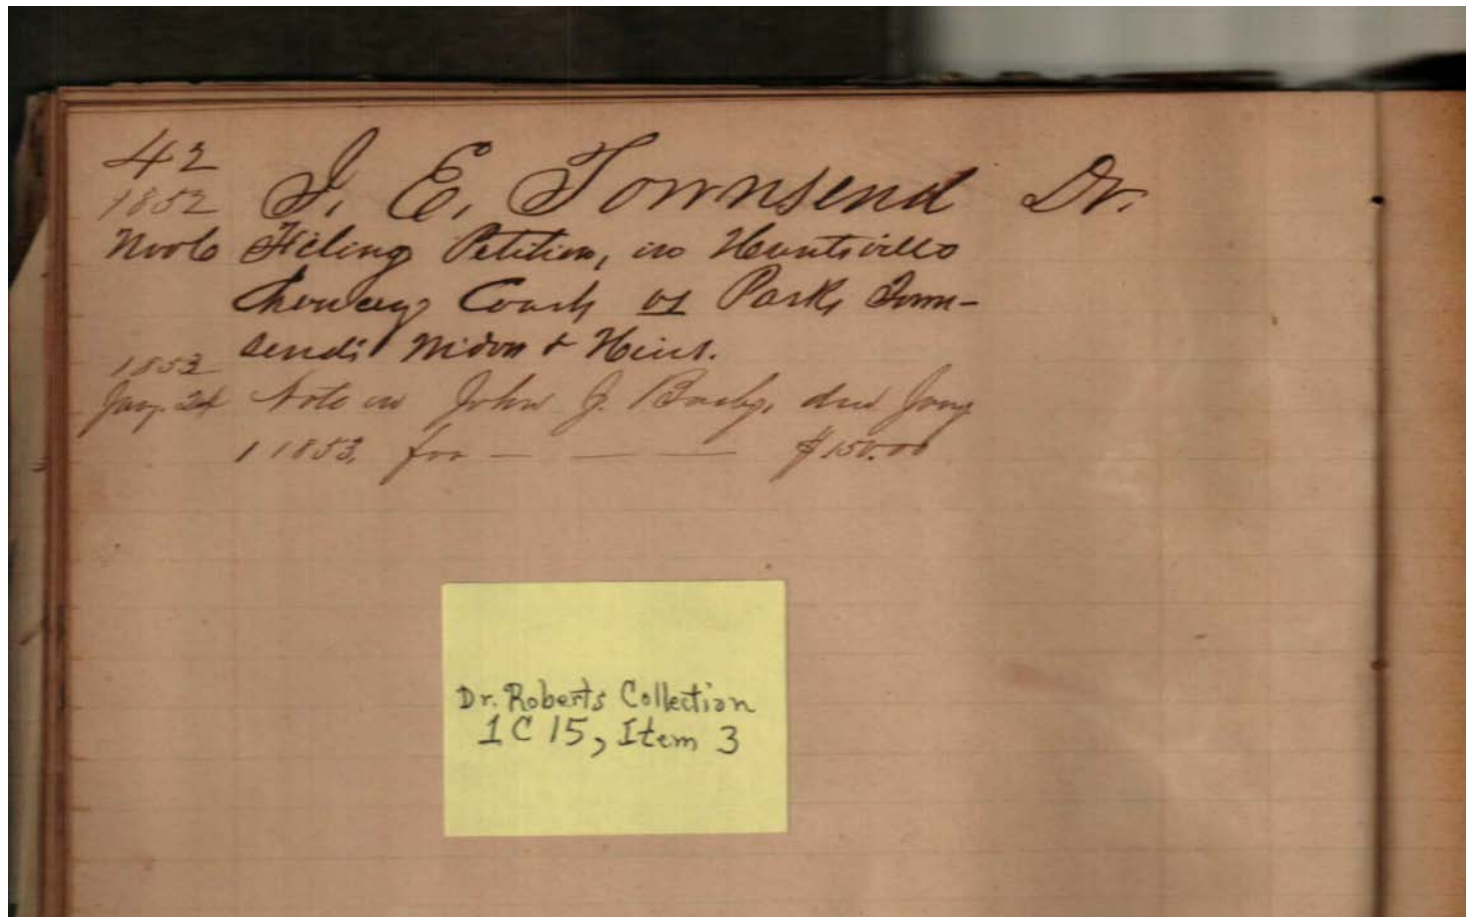 42
1852 S. E. Townsend Dr.
Nov 6 Filing Petition, in Huntsville
Chancery Court vs Parks Town-
send's Widow & Heirs.
1853
Jany. 24 Note on John J. due Jany
1 1853, for — — — $150.00
Dr. Roberts Collection
1C15, Item 3